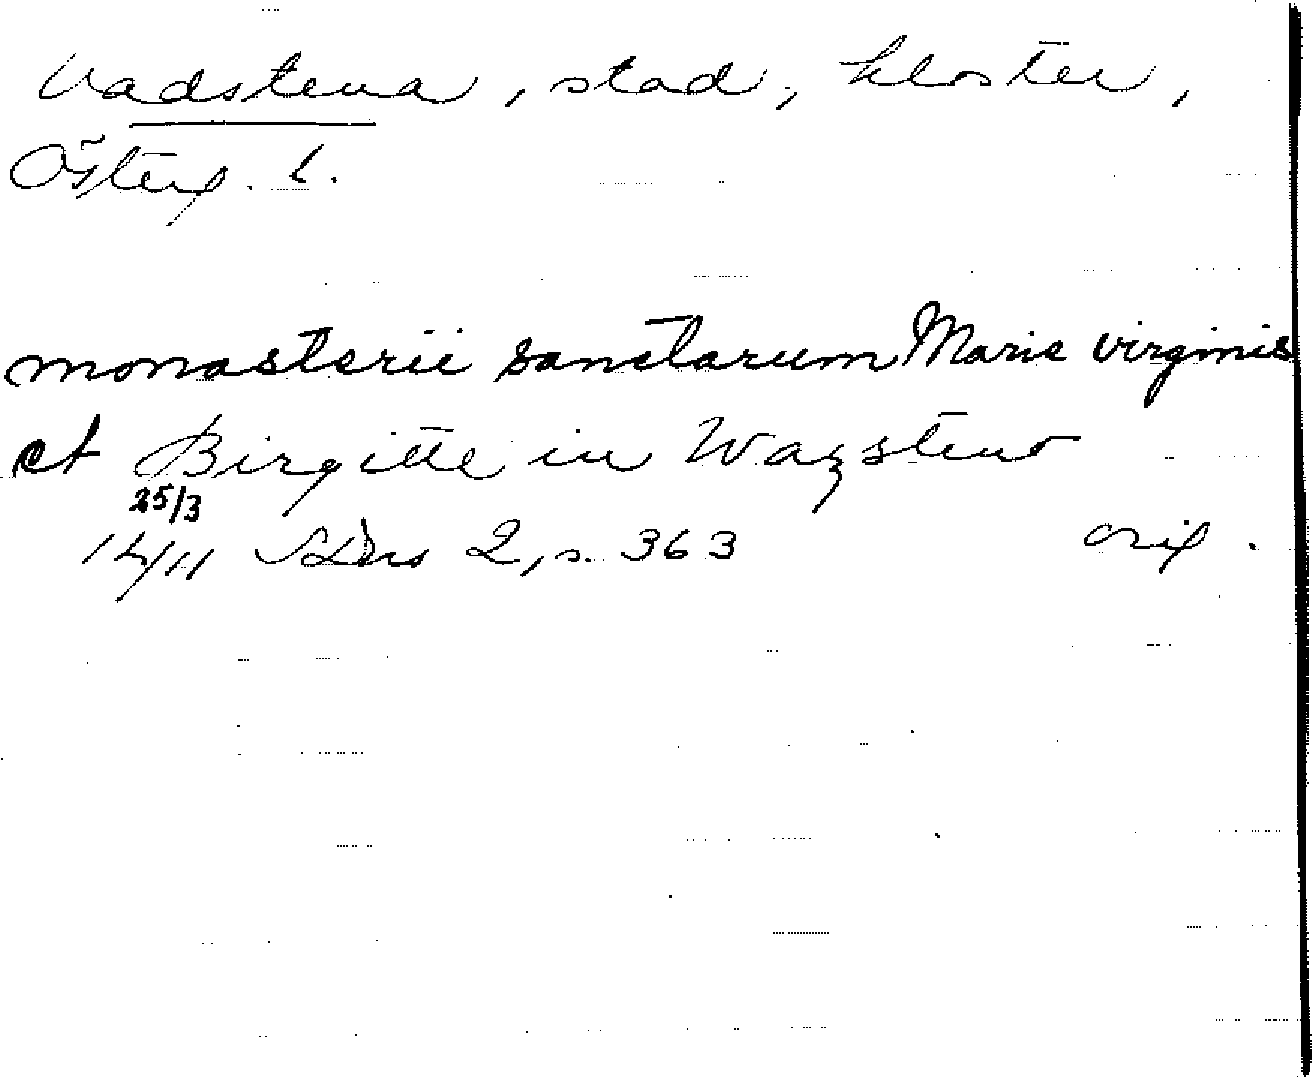 Vadstena, stad, kloster,
Österg. l.
monasterii sanctarum Marie virginis
et Birgitte in Wazsteno
25/3
14/11 SDns 2, s. 363 orig.